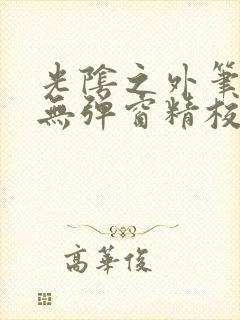 光陰之外筆
無彈窗精校
高華俊